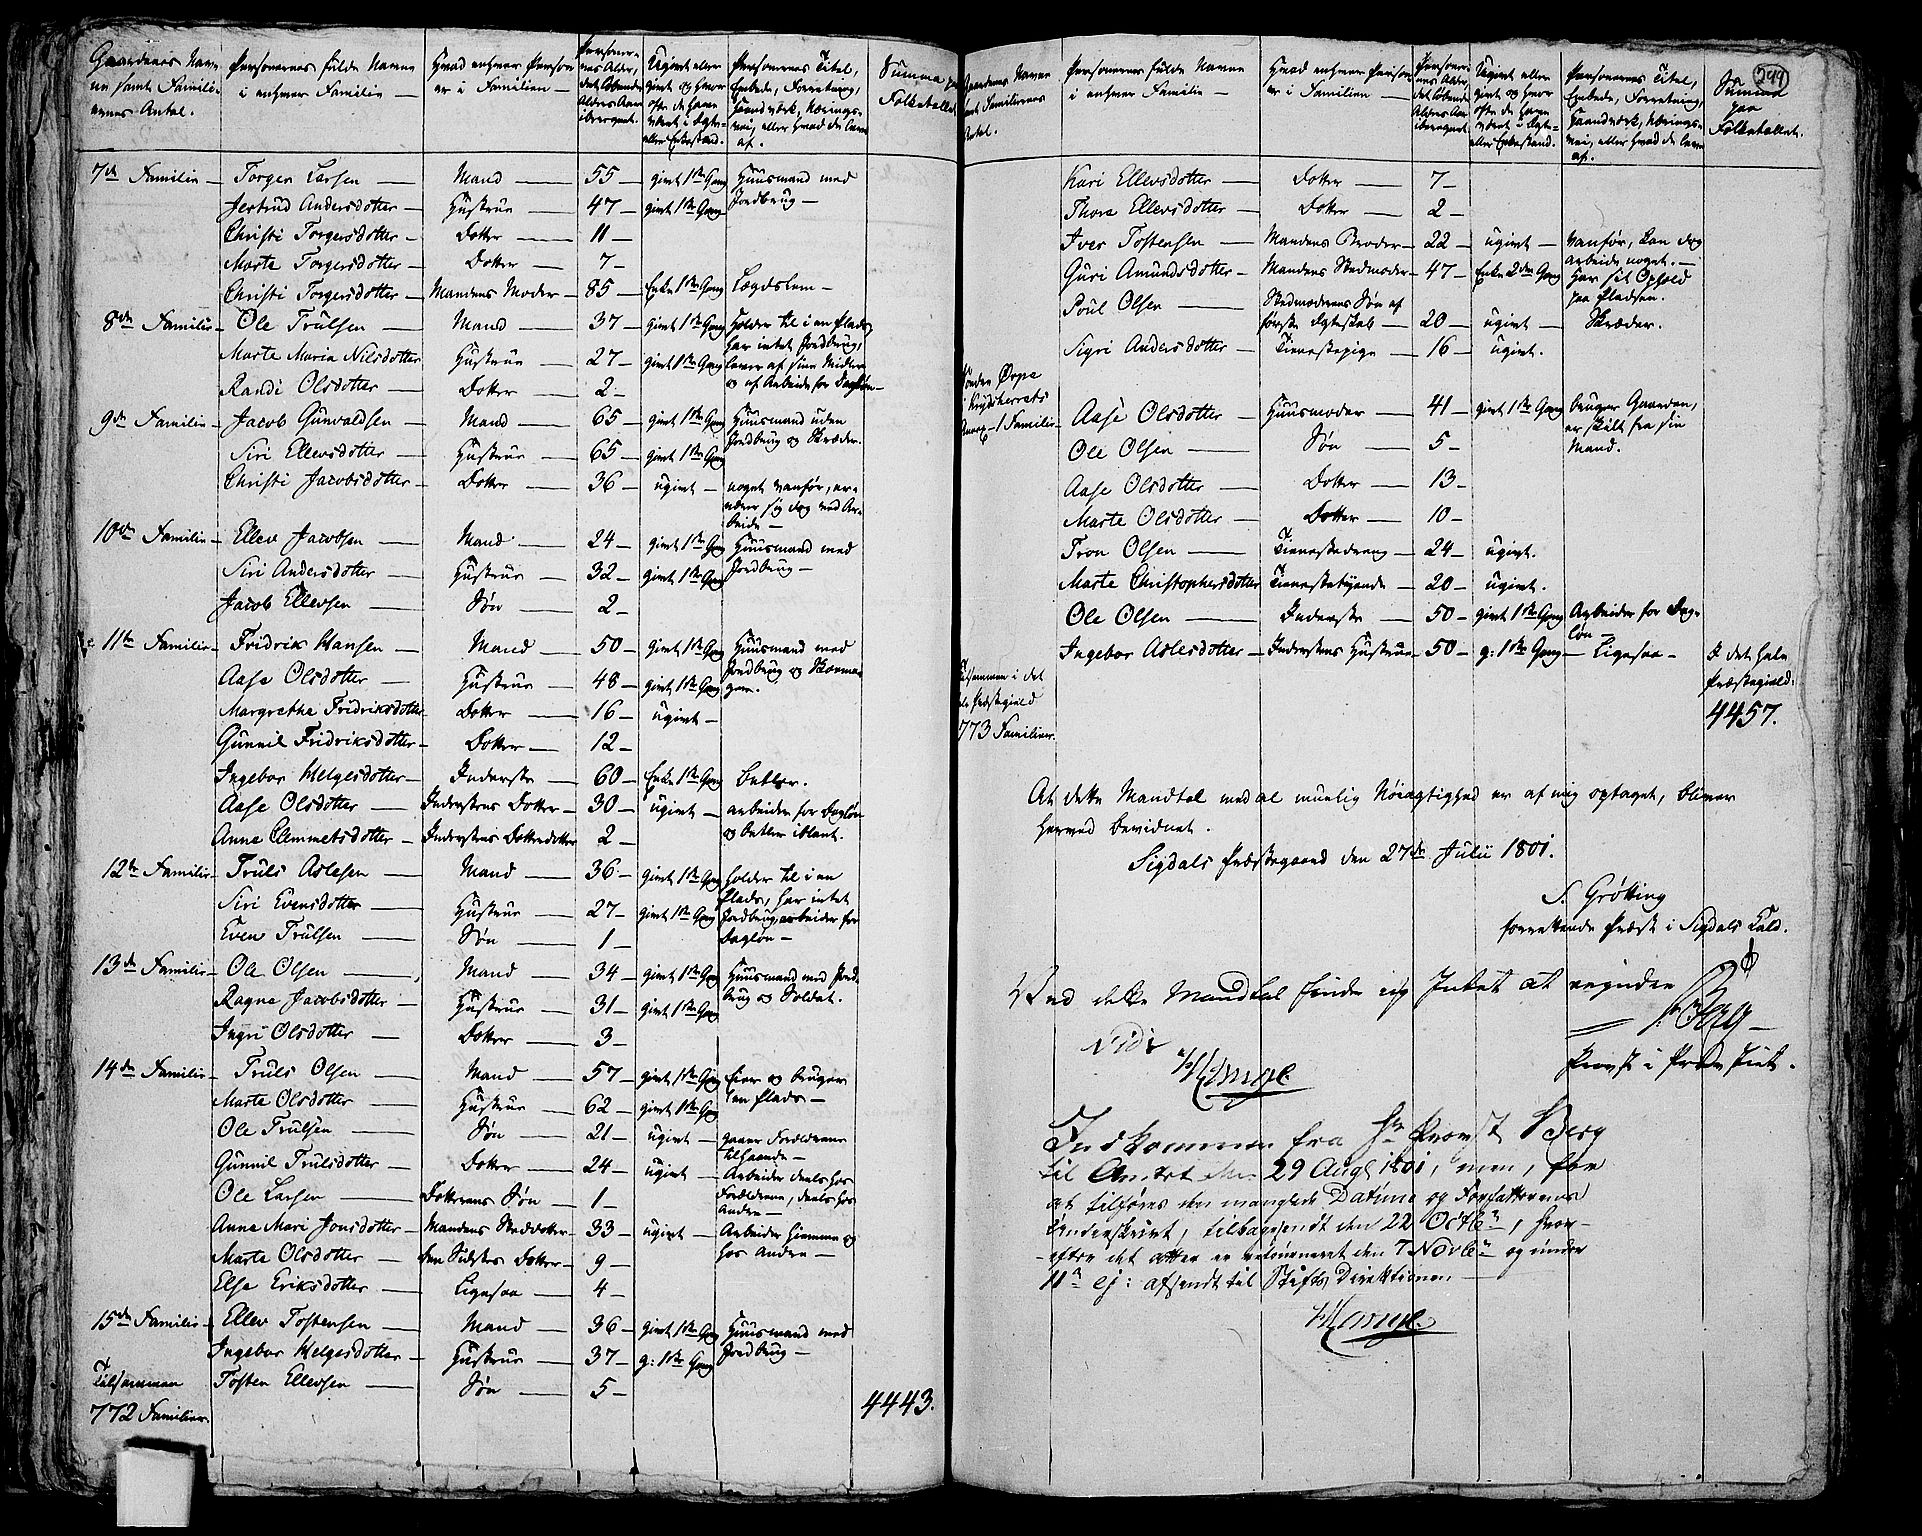 Gaardenes Navne samt Familiernes Antal.
Personernes fulde Navne i enhver Familie
Hvad enhver Person er i Familien
Personernes Alder, det løbende Alders Aar iberegnet.
Ugivt eller givt og hvor ofte de have været i Egte- eller Enkestand.
Personernes Titel, Embede, Forretning, Haandværk, Næringsvei, eller hvad de leve af.
Summa paa Folketallet
7de Familie — Torger Larsen — Mand — 55 — givt 1ste Gang Huusmand med
Jertrud Andersdotter — Hustrue — 47 — givt 1ste Gang Jordbrug —
Christi Torgersdotter — Dotter — 11 —
Marte Torgersdotter — Dotter — 7 —
Christi Torgersdotter — Mandens Moder — 85 — Enke 1ste Gang Lægdslem —
8de Familie — Ole Trulsen — Mand — 37 — givt 1ste Gang Holder til i en Plads,
har intet Jordbrug,
Marte Maria Nilsdotter Hustrue — 27 — givt 1ste Gang lever af sine Midler
Randi Olsdotter — Dotter — 2 — og af Arbeide for Dagløn —
9de Familie — Jacob Gunvaldsen — Mand — 65 — givt 1ste Gang Huusmand uden
Jordbrug og Skræder.
Siri Ellevsdotter — Hustrue — 65 — givt 1ste Gang
Christi Jacobsdotter — Dotter — 36 — ugivt — noget vanfør, er-
nærer sig dog ved Ar-
beide —
10de Familie — Ellev Jacobsen — Mand — 24 — givt 1ste Gang Huusmand med
Siri Andersdotter — Hustrue — 32 — givt 1ste Gang Jordbrug —
Jacob Ellevsen — Søn — 2 —
11te Familie — Fridrik Hansen — Mand — 50 — givt 1ste Gang Huusmand med
Jordbrug og Skoma-
Aase Olsdotter — Hustrue — 48 — givt 1ste Gang ger.
Margretha Fridriksdotter Dotter — 16 — ugivt —
Gunnil Fridriksdotter — Dotter — 12 —
Ingebor Helgesdotter — Inderste — 60 — Enke 1ste Gang Betler.
Aase Olsdotter — Inderstens Dotter — 30 — ugivt — arbeider for Dagløn
Anne Clemmetsdotter — Inderstens Dotterdotter 2 — og betler iblant.
12te Familie — Truls Aslesen — Mand — 36 — givt 1ste Gang holder til i en
Plads, har intet
Siri Evensdotter — Hustrue — 27 — givt 1ste Gang Jordbrug, arbeider for
Even Trulsen — Søn — 1 — Dagløn —
13de Familie — Ole Olsen — Mand — 34 — givt 1ste Gang Huusmand med Jord-
brug og Soldat.
Ragne Jacobsdotter — Hustrue — 31 — givt 1ste Gang
Ingri Olsdotter — Dotter — 3 —
14de Familie — Truls Olsen — Mand — 57 — givt 1ste Gang Eier og bruger
Marte Olsdotter — Hustrue — 62 — givt 1ste Gang en Plads —
Ole Trulsen — Søn — 21 — ugivt — gaaer Forældrene
tilhaande —
Gunnil Trulsdotter — Dotter — 24 — ugivt — Arbeider deels hos
Ole Larsen — Dotterens Søn — 1 — Forældrene, deels hos
Andre —
Anne Mari Jonsdotter — Mandens Steddotter — 33 — ugivt — Arbeider hiemme og
Marte Olsdotter — den Sidstes Dotter — 9 — hos Andre —
Else Eriksdotter — Ligesaa — 4 —
15de Familie — Ellev Tostensen — Mand — 36 — givt 1ste Gang Huusmand med
Ingebor Helgesdotter — Hustrue — 37 — g: 1ste Gang Jordbrug —
Tosten Ellevsen — Søn — 5 —
Tilsammen
772 Familier. 4443.
244
Gaardenes Navne samt Familiernes Antal.
Personernes fulde Navne i enhver Familie —
Hvad enhver Person er i Familien —
Personernes Alder, det løbende Alders Aar iberegnet.
Ugivt eller givt og hvor ofte de have været i Egte- eller Enkestand.
Personernes Titel, Embede, Forretning, Haandværk, Næringsvei, eller hvad de leve af.
Summa paa Folketallet.
Kari Ellevsdotter — Dotter — 7 —
Thore Ellevsdotter — Dotter — 2 —
Iver Tostensen — Mandens Broder — 22 — ugivt — vanfør, kan dog
arbeide noget. —
Guri Amundsdotter — Mandens Stedmoder — 47 — Enke 2den Gang Har sit Ophold
paa Pladsen.
Poul Olsen — Stedmoderens Søn af
første Egteskab — 20 — ugivt — Skræder.
Sigri Andersdotter — Tienestepige — 16 — ugivt.
Søndre Øvpe
i Krydsherrets
Annex — 1 Familie — Aase Olsdotter — Huusmoder — 41 — givt 1ste Gang bruger Gaarden,
er skilt fra sin
Ole Olsen — Søn — 5 — Mand.
Aase Olsdotter — Dotter — 13 —
Marte Olsdotter — Dotter — 10 —
Tron Olsen — Tienestedreng — 24 — ugivt.
Marte Christophersdotter Tienestetyende — 20 — ugivt.
Ole Olsen — Inderste — 50 — givt 1ste Gang Arbeider for Dag-
løn —
Ingebor Aslesdotter — Inderstens Hustrue — 50 — g: 1ste Gang — Ligesaa —
Tilsammen i det
hele Præstegield
773 Familier.
I det hele
Præstegield.
4457.
At dette Mandtal med al muelig Nöiagtighed er af mig optaget, bliver
herved bevidnet.
Sigdals Præstegaard den 27de Julii 1801.
S. Grötting
forrettende Præst i Sigdals Kald.
Ved dette Mandtal finder ieg Intet at erindre
Berg
Provst i
Vidi
Indkommen fra Hr Provst Berg
til Amtet den 29 Augt 1801, men, for
at tilføres den manglede Datum og Forfatterens
Underskrivt, tilbagesendt den 22 Octbr, hvor-
efter det atter er retourneret den 7 Novbr og under
11te ej: afsendt til Stifts Direktionen